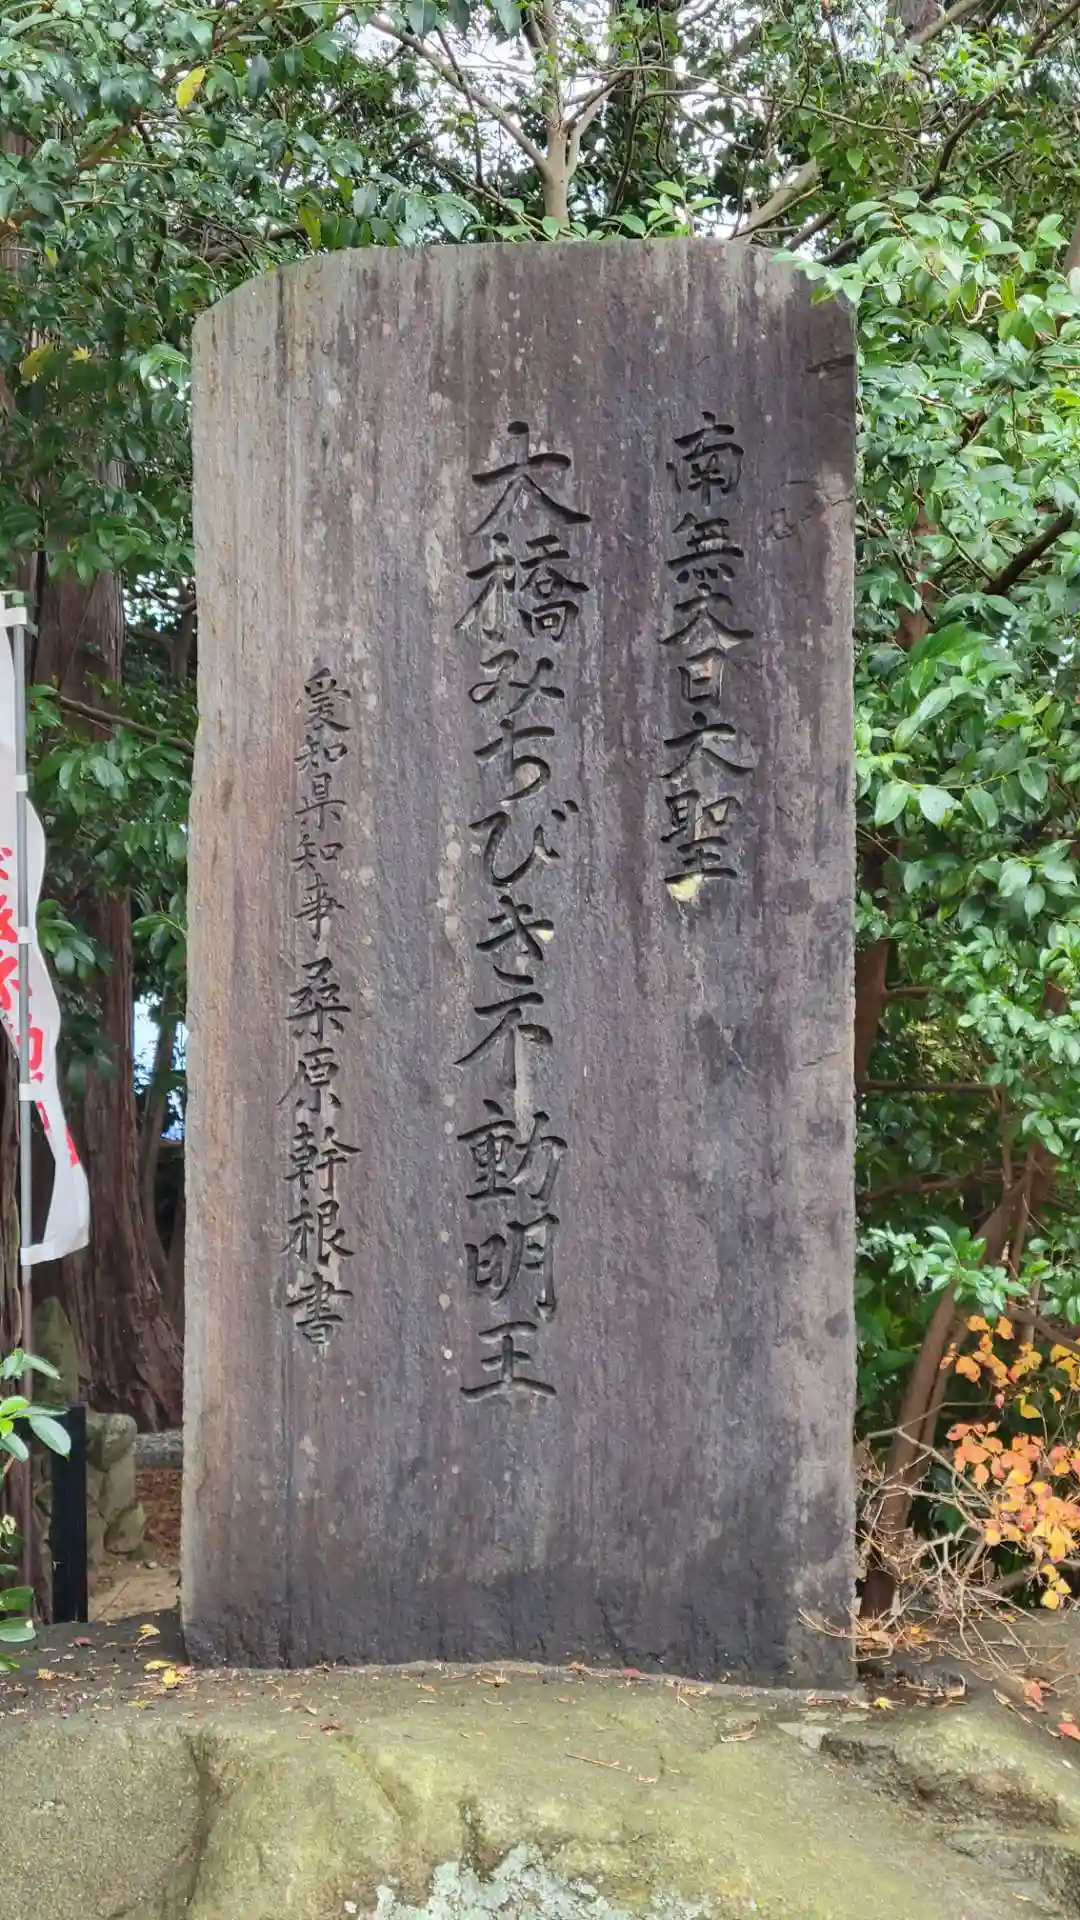 南無大日大聖
大橋みちびき不動明王
愛知県知事桑原幹根書